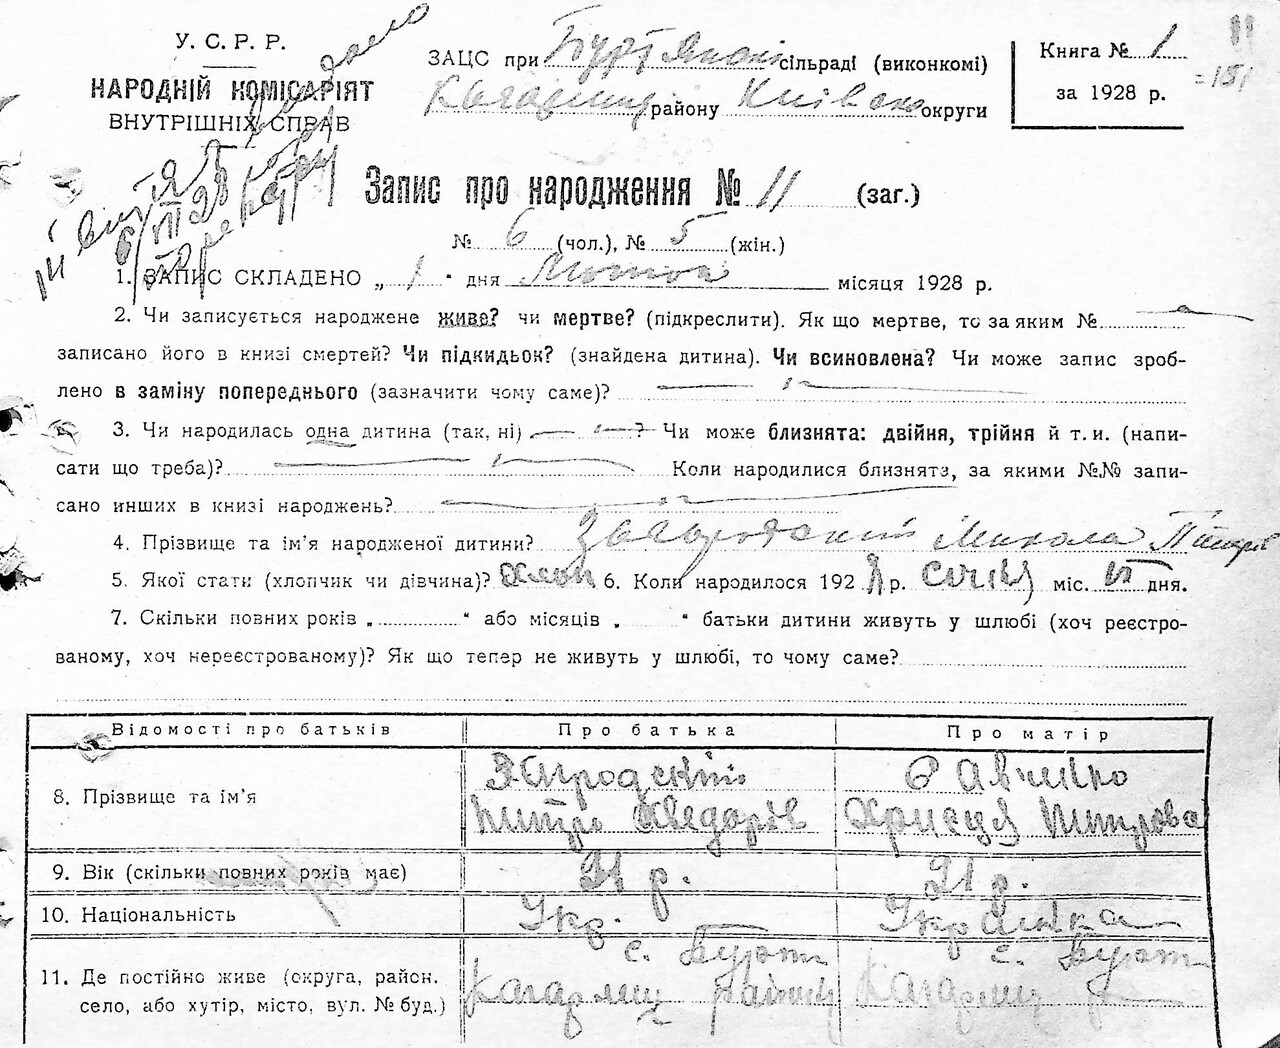 У. С. Р. Р.
НАРОДНІЙ КОМІСАРІЯТ
ВНУТРІШНІХ СПРАВ
ЗАЦС при сільраді (виконкомі)
району округи
Книга № 1
за 1928 р.
11
Запис про народження № 11 (заг.)
№ 6 (чол.), № 5 (жін.)
1. ЗАПИС СКЛАДЕНО „ 1 " дня Лютого місяця 1928 р.
2. Чи записується народжене живе? чи мертве? (підкреслити). Як що мертве, то за яким №
записано його в книзі смертей? Чи підкидьок? (знайдена дитина). Чи всиновлена? Чи може запис зроб-
лено в заміну попереднього (зазначити чому саме)?
3. Чи народилась одна дитина (так, ні) ? Чи може близнята: двійня, трійня й т. и. (напи-
сати що треба)? Коли народилися близнята, за якими №№ запи-
сано инших в книзі народжень?
4. Прізвище та ім'я народженої дитини? Загородский Микола
5. Якої стати (хлопчик чи дівчина)? Хлоп 6. Коли народилося 192 8 р. Січня міс. дня.
7. Скільки повних років „ " або місяців „ " батьки дитини живуть у шлюбі (хоч реєстро-
ваному, хоч нереєстрованому)? Як що тепер не живуть у шлюбі, то чому саме?
Відомості про батьків Про батька Про матір
8. Прізвище та ім'я
Савченко
Христя
9. Вік (скільки повних років має) 21 р. 21 р.
10. Національність Укр. Українка
11. Де постійно живе (округа, район.
село, або хутір, місто, вул. № буд.)
с. Бурти
Кагарлиц
с. Бурти
Кагарлиц